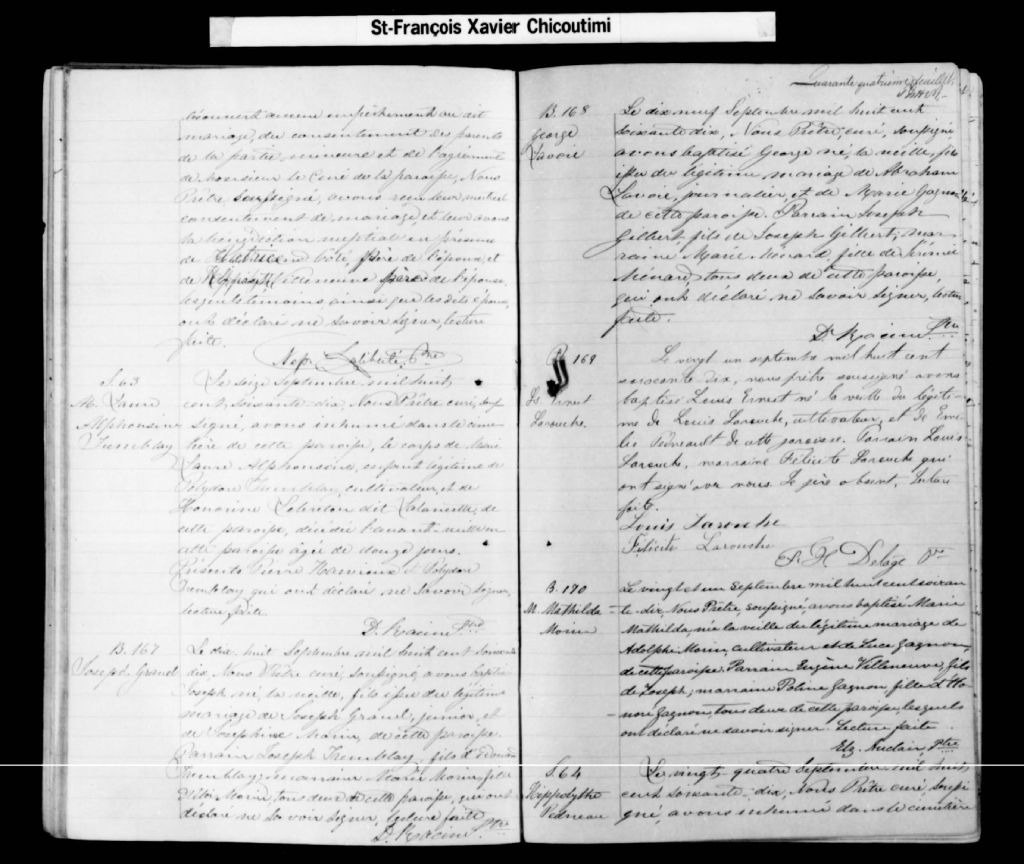 St-François Xavier Chicoutimi
découvert aucun empêchement au dit
mariage, du consentement des parents
de la partie mineure et de l'agrément
de Monsieur le Curé de la paroisse, Nous
Prêtre, soussigné, avons reçu leur mutuel
consentement de mariage, et leur avons
la bénédiction nuptiale en présence
de Côté, père de l'époux, et
de Villeneuve père de l'épouse,
lesquels témoins ainsi que les dits époux
ont déclaré ne savoir signer, lecture
faite.
Nap. Laliberté, Ptre
S. 63
M. Laure
Alphonsine
Tremblay
Le seize Septembre mil huit
cent soixante dix, Nous Prêtre curé, sous
signé, avons inhumé dans le cime
tière de cette paroisse, le corps de Marie
Laure Alphonsine, enfant légitime de
Polydore Tremblay, cultivateur, et de
Honorine Lebreton dit Lalancette, de
cette paroisse, décédée l'avant-veille en
cette paroisse âgée de douze jours.
Présents Pierre et Polydore
Tremblay qui ont déclaré ne savoir signer,
lecture faite.
D. Racine Ptre
B. 167
Joseph Gravel
Le dix huit Septembre mil huit cent soixante
dix, Nous Prêtre curé, soussigné, avons baptisé
Joseph né la veille, fils issu du légitime
mariage de Joseph Gravel, junior, et
de Joséphine Morin, de cette paroisse.
Parrain Joseph Tremblay, fils d'
Tremblay; marraine Marie Morin, fille
d'Eloi Morin, tous deux de cette paroisse, qui ont
déclaré ne savoir signer, lecture faite
D. Racine Ptre
Quarante quatrième feuillet
B. 168
George
Lavoie
Le dix neuf Septembre mil huit cent
soixante dix, Nous Prêtre, curé, soussigné
avons baptisé George né, la veille, fils
issu du légitime mariage de Abraham
Lavoie, journalier, et de Marie Gagnon
de cette paroisse. Parrain Joseph
Gilbert, fils de Joseph Gilbert; mar
raine Marie Ménard, fille de Jérémie
Ménard, tous deux de cette paroisse,
qui ont déclaré ne savoir signer, lecture
faite.
D. Racine Ptre
B. 169
Ls. Ernest
Larouche.
Le vingt un septembre mil huit cent
soixante dix, nous prêtre soussigné avons
baptisé Louis Ernest né la veille du légiti-
me de Louis Larouche, cultivateur, et de Eme
lie Pedneault de cette paroisse. Parrain Louis
Larouche, marraine Félicité Larouche qui
ont signé avec nous. Le père absent, lecture
faite.
Louis Larouche
Félicité Larouche
F. H Delâge Ptre
B. 170
M. Mathilda
Morin
Le vingt et un Septembre mil huit cent soixan
te-dix Nous Prêtre, soussigné, avons baptisé Marie
Mathilda, née la veille du légitime mariage de
Adolphe Morin, cultivateur et de Luce Gagnon,
de cette paroisse. Parrain Eugène Villeneuve, fils
de Joseph; marraine Poline Gagnon fille d'Ho-
noré Gagnon, tous deux de cette paroisse, lesquels
ont déclaré ne savoir signer. Lecture faite
Elz. Auclair, Ptre
S. 64
Hippolythe
Pedneau
Le vingt-quatre Septembre mil huit
cent soixante-dix, Nous Prêtre curé, soussi
gné, avons inhumé dans le cimetière